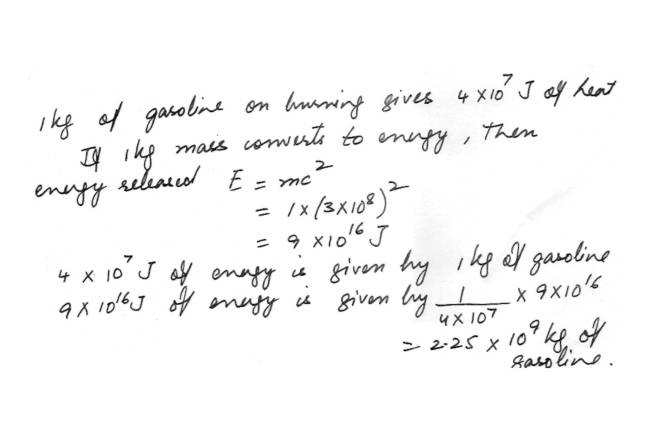 1kg of gasoline on burning gives 4 x 10⁷ J of heat
If 1kg mass converts to energy, Then
energy released E = mc²
= 1 x (3x10⁸)²
= 9 x10¹⁶ J
4 x 10⁷ J of energy is given by 1kg of gasoline
9 x 10¹⁶ J of energy is given by 1/(4x10⁷) x 9x10¹⁶
= 2.25 x 10⁹ kg of
gasoline.